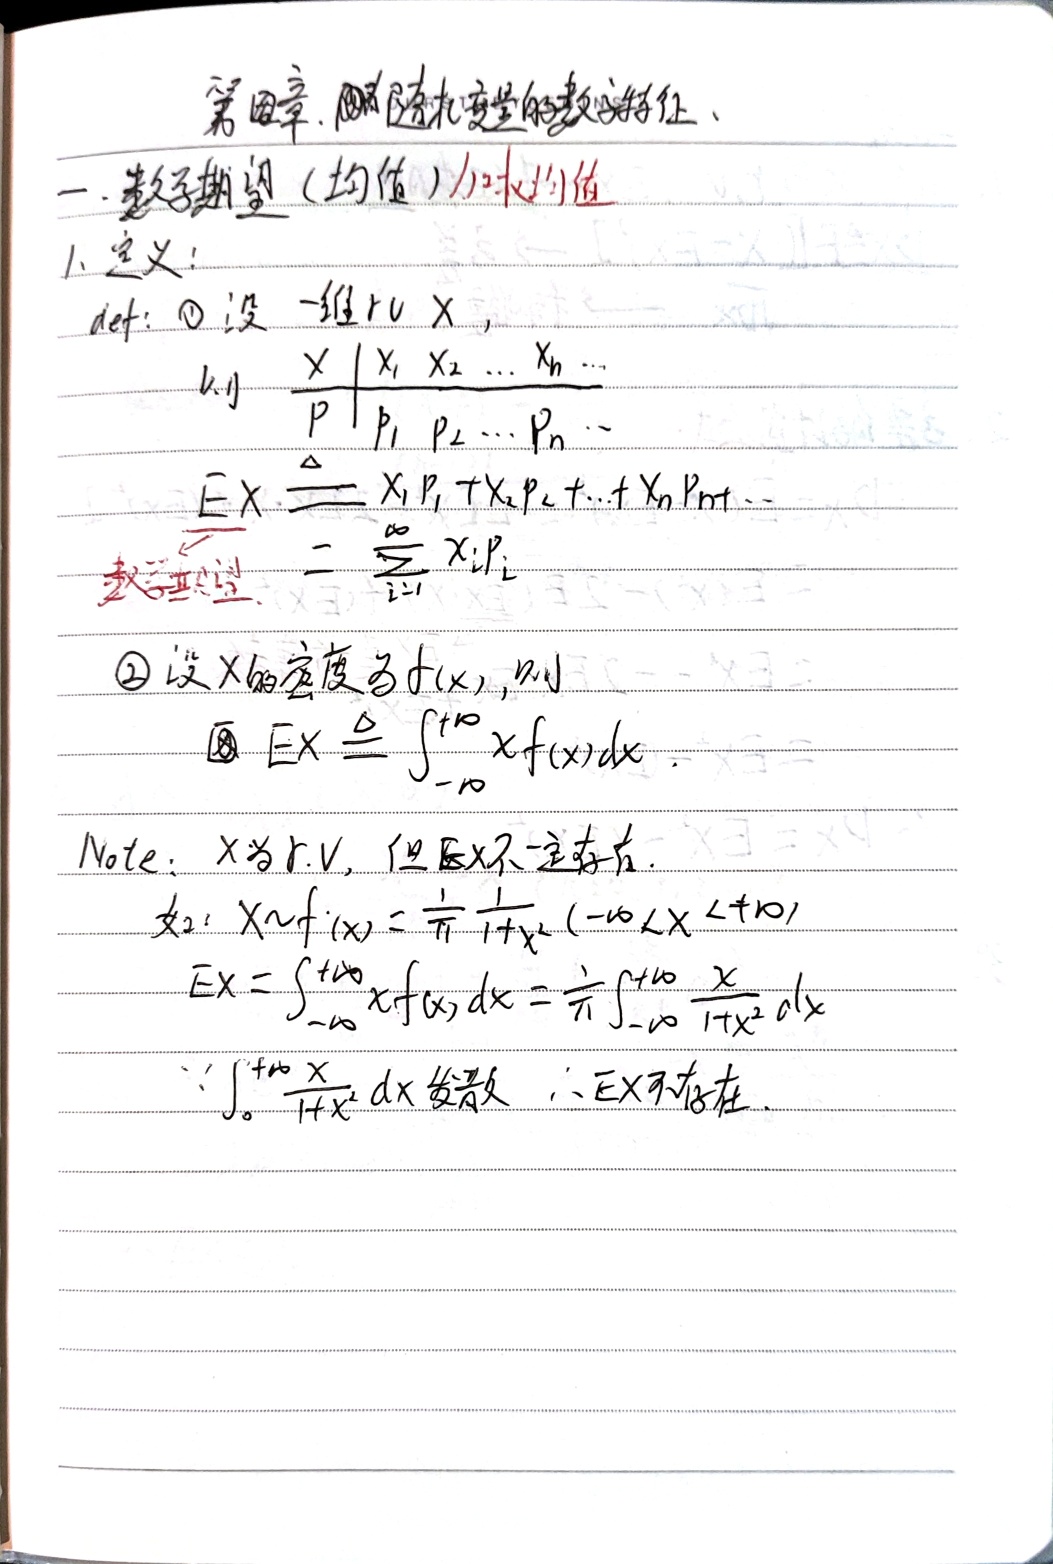 第四章. 随机变量的数字特征、
一. 数学期望 (均值) 加权均值
1、定义:
def: ① 设 一维 r v X ,
X | X₁ X₂ ... Xn ...
P | P₁ P₂ ... Pn ...
EX ≜ X₁P₁ + X₂P₂ + ... + XnPn + ...
= ∑_{i=1}^{∞} XiPi
数学期望.
② 设 X 的密度为 f(x), 则
EX ≜ ∫_{-∞}^{+∞} x f(x) dx .
Note: X 为 r.v, 但 EX 不一定存在.
如: X ~ f(x) = 1/π 1/(1+x²) (-∞ < x < +∞)
EX = ∫_{-∞}^{+∞} x f(x) dx = 1/π ∫_{-∞}^{+∞} x/(1+x²) dx
∵ ∫_{0}^{+∞} x/(1+x²) dx 发散 ∴ EX 不存在.